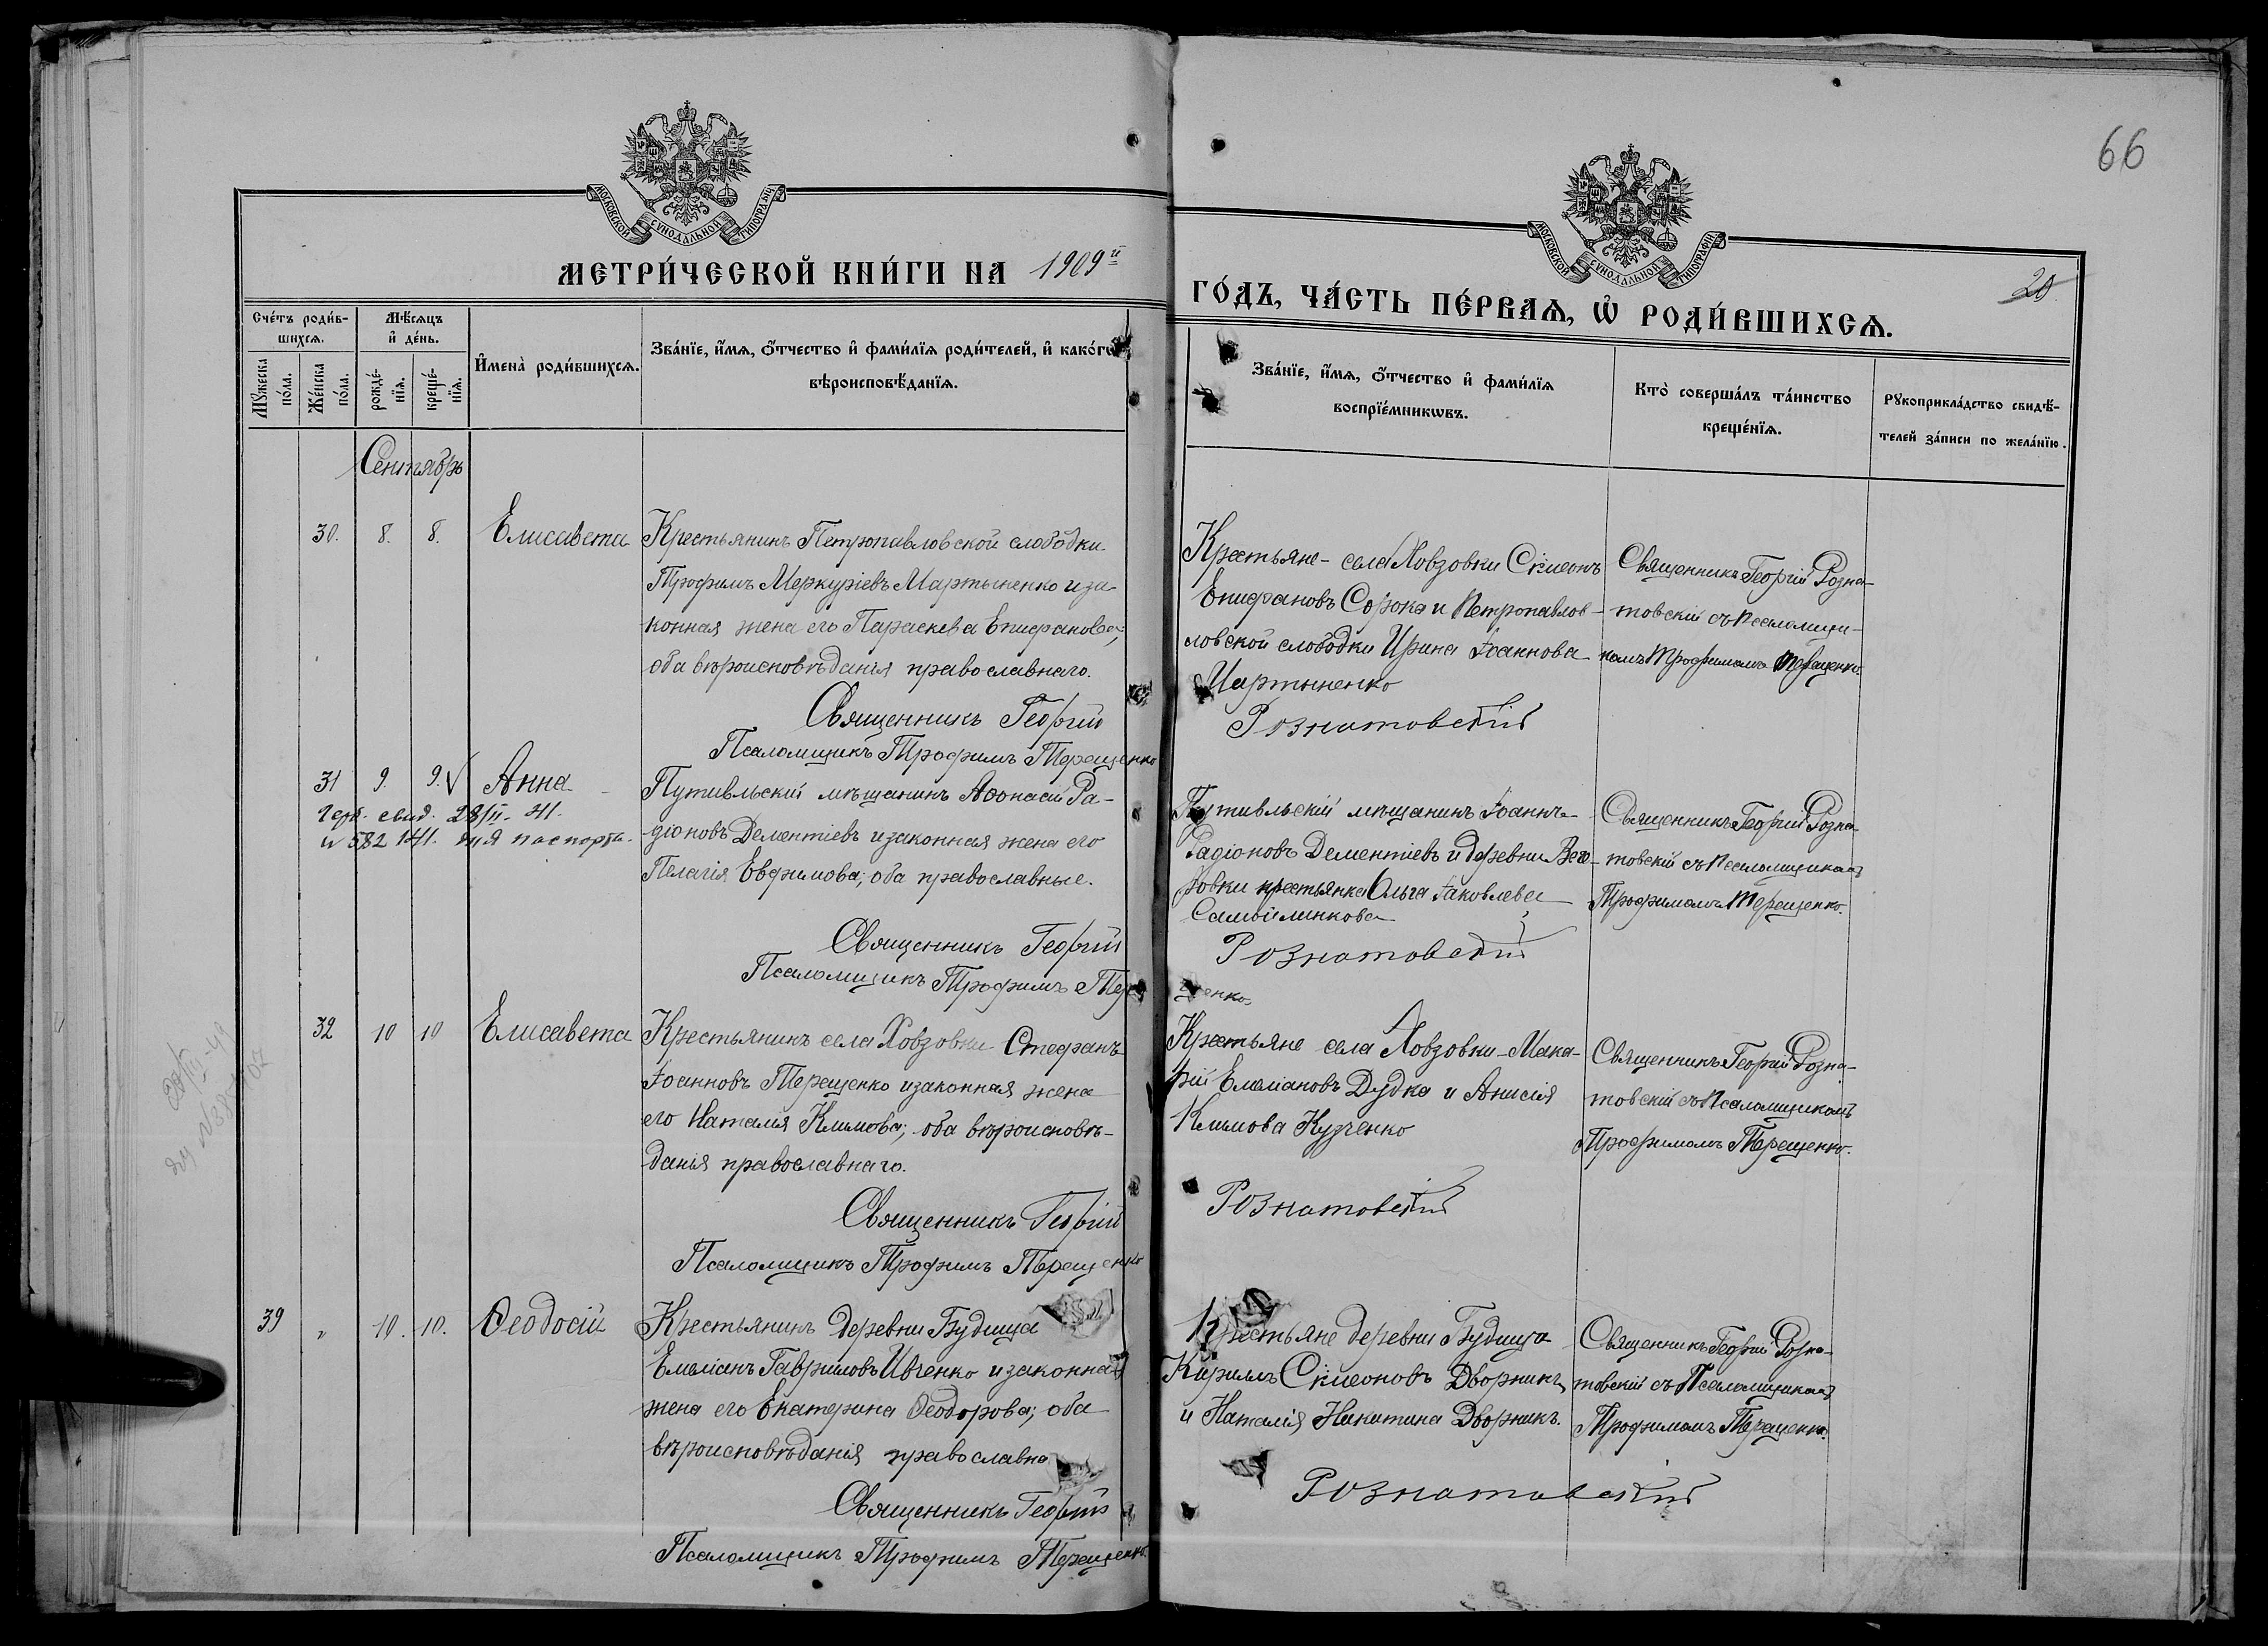 66
МОСКОВСКОЙ СѴНОДАЛЬНОЙ ТИПОГРАФІИ
МОСКОВСКОЙ СѴНОДАЛЬНОЙ ТИПОГРАФІИ
МЕТРИ́ЧЕСКОЙ КНИ́ГИ НА 1909й
ГО́ДЪ, ЧА́СТЬ ПЕ́РВАѦ, Ѡ҆ РОДИ́ВШИХСѦ.
20
Сче́тъ роди́в-
шихсѧ.
Мѣ́сѧцъ
и҆ де́нь.
Мꙋ́жеска
по́ла.
Же́нска
по́ла.
рожде́-
нїѧ.
креще́-
нїѧ.
И҆мена̀ роди́вшихсѧ.
Зва́нїе, и҆́мѧ, ѻ҆́тчество и҆ фами́лїѧ роди́телей, и҆ како́гѡ
вѣроисповѣ́данїѧ.
Зва́нїе, и҆́мѧ, ѻ҆́тчество и҆ фами́лїѧ
воспрїе́мникѡвъ.
Кто̀ соверша́лъ та́инство
креще́нїѧ.
Рꙋкоприкла́дство свидѣ́-
телей за́писи по жела́нїю.
Сентябрь
30. 8. 8. Елисавета
Крестьянинъ Петропавловской слободки
Трофимъ Меркуріевъ Мартыненко и за-
конная жена его Параскева Епифанова;
оба вѣроисповѣданія православнаго.
Священникъ Георгій
Псаломщикъ Трофимъ Терещенко
Крестьяне - села Ховзовки Сѵмеонъ
Епифановъ Сорока и Петропавлов-
ловской слободки Ирина Іоаннова
Мартыненко
Рознатовскій
Священникъ Георгій Розна-
товскій съ Псаломщи-
комъ Трофимомъ Терещенко.
31 9. 9. √ Анна
свид. 28/II. 41.
N 582 1941. для паспорта.
Путивльскій мѣщанинъ Аѳонасій Ра-
діоновъ Дементіевъ и законная жена его
Пелагія Евфимова; оба православные.
Священникъ Георгій
Псаломщикъ Трофимъ Тере
щенко
Путивльскій мѣщанинъ Іоаннъ
Радіоновъ Дементіевъ и деревни
крестьянка Ольга Іаковлева
Самойленкова
Рознатовскій
Священникъ Георгій Розна-
товскій съ Псаломщикомъ
Трофимомъ Терещенко.
32 10 10 Елисавета
Крестьянинъ села Ховзовки Стефанъ
Іоанновъ Терещенко и законная жена
его Наталія Климова; оба вѣроисповѣ-
данія православнаго.
Священникъ Георгій
Псаломщикъ Трофимъ Терещенко
Крестьяне села Ховзовки - Мака-
рій Емеліановъ Дудка и Анисія
Климова Кузченко
Рознатовскій
Священникъ Георгій Розна-
товскій съ Псаломщикомъ
Трофимомъ Терещенко.
39 „ 10. 10. Ѳеодосій
Крестьянинъ деревни Будища
Емеліанъ Гавриловъ Ивченко и законная
жена его Екатерина Ѳеодорова; оба
вѣроисповѣданія православна
Священникъ Георгій
Псаломщикъ Трофимъ Терещенко.
Крестьяне деревни Будища
Кириллъ Сѵмеоновъ Дворникъ
и Наталія Никитина Дворникъ.
Рознатовскій
Священникъ Георгій Розна-
товскій съ Псаломщикомъ
Трофимомъ Терещенко.